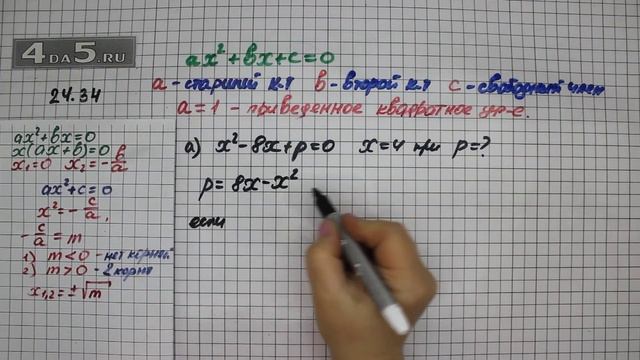 4DA5.RU
24.34
ax²+bx+c=0
a - старший к.т b - второй к.т c - свободный член
a=1 - приведенное квадратное ур-е.
ax²+bx=0
x(ax+b)=0
x₁=0 x₂=-b/a
ax²+c=0
x²=-c/a,
-c/a=m
1) m<0 - нет корней
2) m>0 - 2 корня
x₁,₂=±√m
а) x²-8x+p=0 x=4 при p=?
p=8x-x²
если